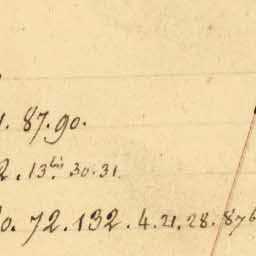 87.90.
2. 13bis. 30.31.
0. 72.132.4.21.28.876